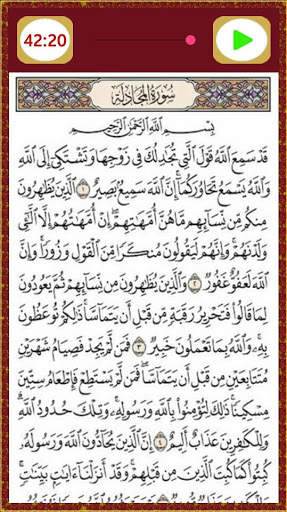 42:20
سُورَةُ المُجَادلَة
بِسْمِ اللَّهِ الرَّحْمَٰنِ الرَّحِيمِ
قَدْ سَمِعَ اللَّهُ قَوْلَ الَّتِي تُجَٰدِلُكَ فِي زَوْجِهَا وَتَشْتَكِي إِلَى اللَّهِ
وَاللَّهُ يَسْمَعُ تَحَاوُرَكُمَا إِنَّ اللَّهَ سَمِيعٌ بَصِيرٌ ١ الَّذِينَ يُظَٰهِرُونَ
مِنكُم مِّن نِّسَآئِهِم مَّا هُنَّ أُمَّهَٰتِهِمْ إِنْ أُمَّهَٰتُهُمْ إِلَّا الَّٰٓـِٔي
وَلَدْنَهُمْ وَإِنَّهُمْ لَيَقُولُونَ مُنكَرًا مِّنَ الْقَوْلِ وَزُورًا وَإِنَّ
اللَّهَ لَعَفُوٌّ غَفُورٌ ٢ وَالَّذِينَ يُظَٰهِرُونَ مِن نِّسَآئِهِمْ ثُمَّ يَعُودُونَ
لِمَا قَالُوا فَتَحْرِيرُ رَقَبَةٍ مِّن قَبْلِ أَن يَتَمَآسَّا ذَٰلِكُمْ تُوعَظُونَ
بِهِۦ وَاللَّهُ بِمَا تَعْمَلُونَ خَبِيرٌ ٣ فَمَن لَّمْ يَجِدْ فَصِيَامُ شَهْرَيْنِ
مُتَتَابِعَيْنِ مِن قَبْلِ أَن يَتَمَآسَّا فَمَن لَّمْ يَسْتَطِعْ فَإِطْعَامُ سِتِّينَ
مِسْكِينًا ذَٰلِكَ لِتُؤْمِنُوا بِاللَّهِ وَرَسُولِهِۦ وَتِلْكَ حُدُودُ اللَّهِ
وَلِلْكَٰفِرِينَ عَذَابٌ أَلِيمٌ ٤ إِنَّ الَّذِينَ يُحَآدُّونَ اللَّهَ وَرَسُولَهُۥ
كُبِتُوا كَمَا كُبِتَ الَّذِينَ مِن قَبْلِهِمْ وَقَدْ أَنزَلْنَآ ءَايَٰتٍۭ بَيِّنَٰتٍ